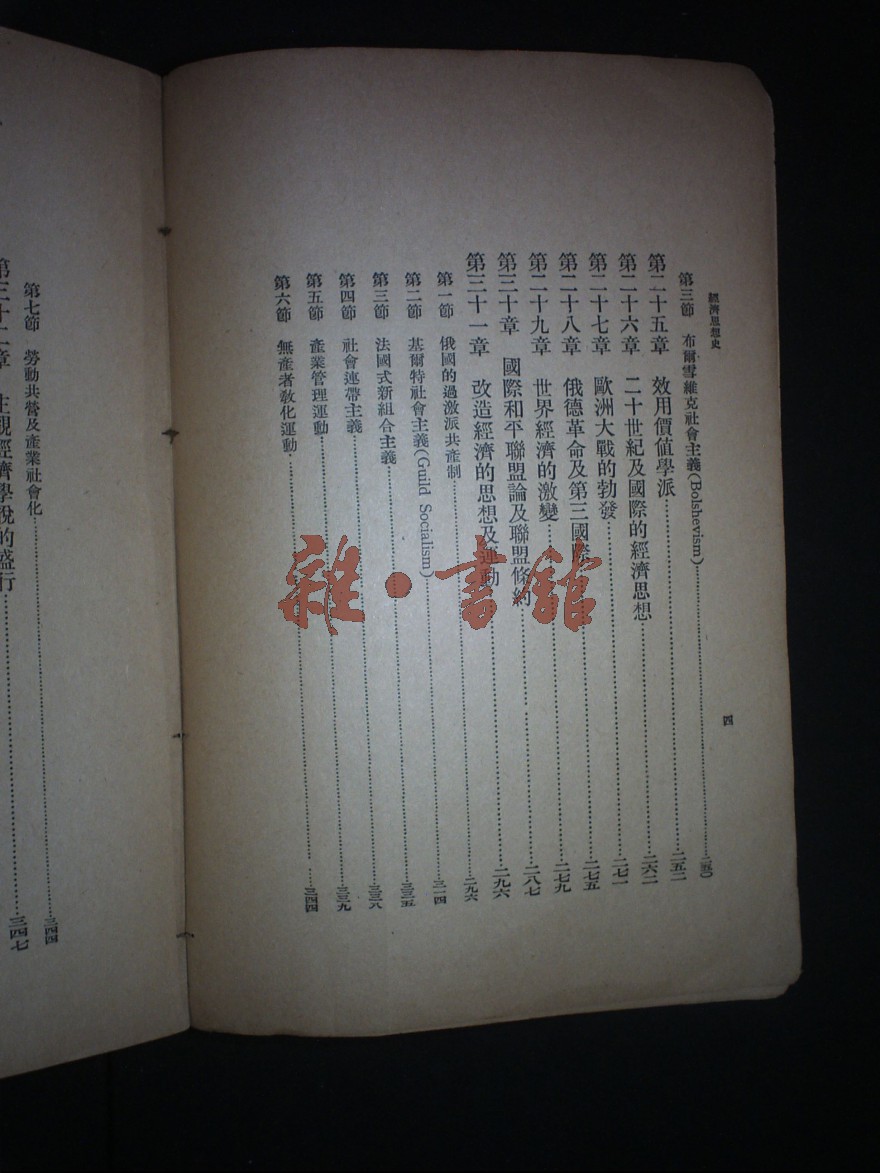 經濟思想史 四
第三節 布爾雪維克社會主義(Bolshevism)
第二十五章 效用價值學派 二五二
第二十六章 二十世紀及國際的經濟思想 二六二
第二十七章 歐洲大戰的勃發 二七一
第二十八章 俄德革命及第三國際 二七五
第二十九章 世界經濟的激變 二七九
第三十章 國際和平聯盟論及聯盟條約 二八七
第三十一章 改造經濟的思想及運動 二九六
第一節 俄國的過激派共產制 二九六
第二節 基爾特社會主義(Guild Socialism) 三一四
第三節 法國式新組合主義 三三五
第四節 社會連帶主義 三三八
第五節 產業管理運動 三三九
第六節 無產者敎化運動 三四四
第七節 勞動共營及產業社會化 三四四
第三十二章 主觀經濟學說的盛行 三四七
雜·書館